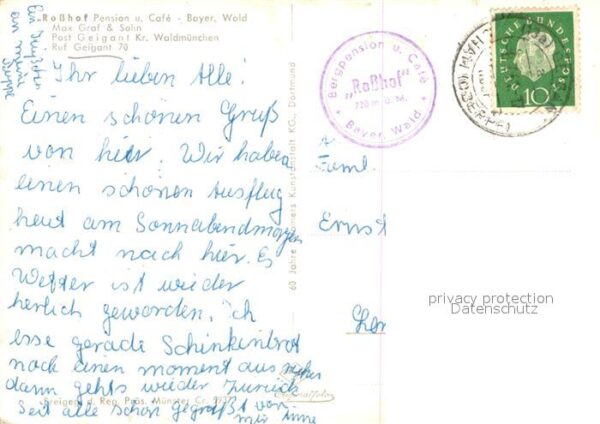 Roßhof Pension u. Café - Bayer. Wald
Max Graf & Sohn
Post Geigant Kr. Waldmünchen
Ruf Geigant 70
Ihr lieben Alle!
Einen schönen Gruß
von hier. Wir haben
einen schönen Ausflug
heut am Sonnabendmorgen
macht nach hier. Es
Wetter ist wieder
herlich geworden. Ich
esse gerade Schinkenbrot
noch einen moment
dann gehts wieder zurück
Seit alle schön gegrüßt von
mir
an meine
60 Jahre Kunstanstalt KG, Dortmund
Freigeg. d. Reg. Präs. Münster Cr
Bergpension u. Café
"Roßhof"
720 m ü. M.
Bayer. Wald
DEUTSCHE BUNDESPOST
10
Faml.
Ernst
privacy protection
Datenschutz